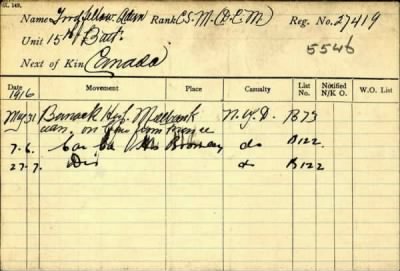 Name Goodfellow Adam Rank C.S.M. (D.C.M) Reg. No. 27419
Unit 15th Batt. 5546
Next of Kin Canada
Date Movement Place Casualty List No. Notified N/K O. W.O. List
1916
May 31 Barrack Hosp. Millbank N.Y.D. B73
on from France
7-6. Can Bromley do B122
27-7. Dis do B122